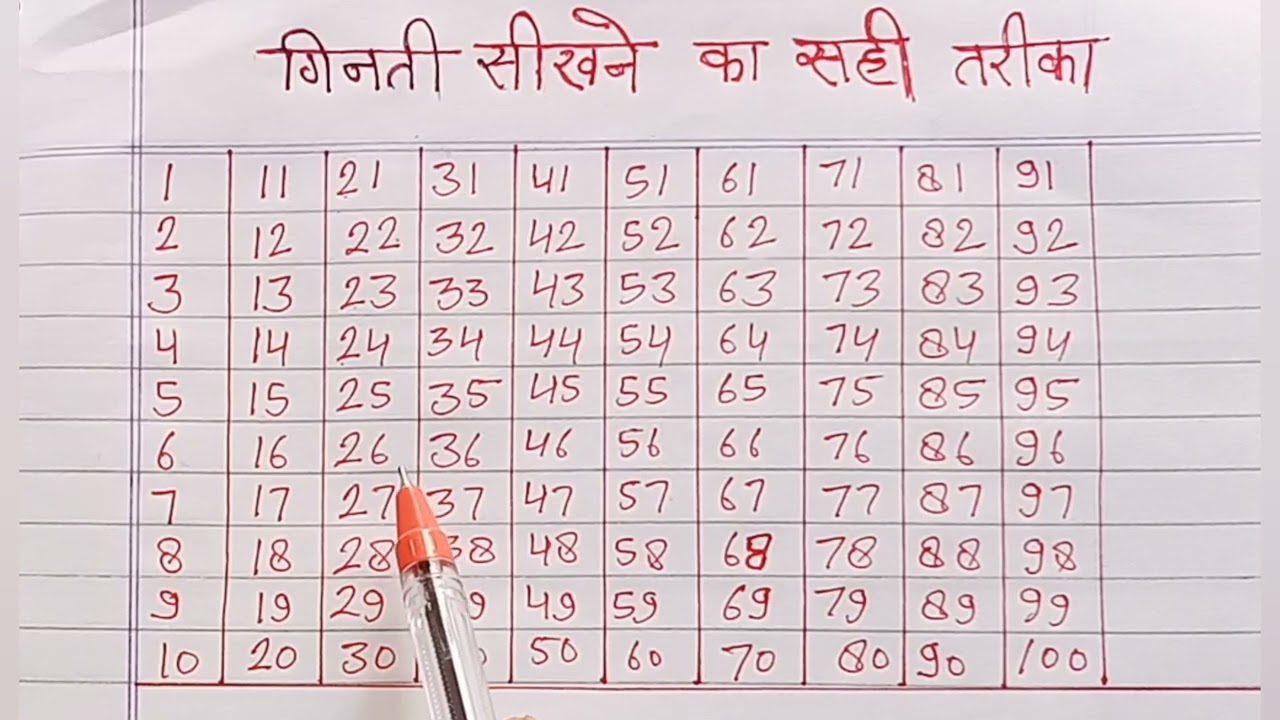 गिनती सीखने का सही तरीका
1 11 21 31 41 51 61 71 81 91
2 12 22 32 42 52 62 72 82 92
3 13 23 33 43 53 63 73 83 93
4 14 24 34 44 54 64 74 84 94
5 15 25 35 45 55 65 75 85 95
6 16 26 36 46 56 66 76 86 96
7 17 27 37 47 57 67 77 87 97
8 18 28 38 48 58 68 78 88 98
9 19 29 49 59 69 79 89 99
10 20 30 50 60 70 80 90 100